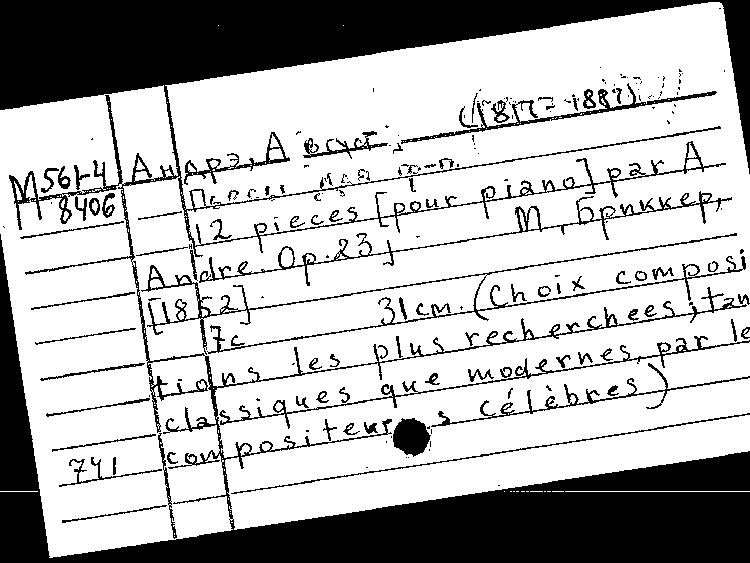 (1817-1887)
М 561-4 Андрэ, Август.
8406 Пьесы для ф-п.
12 pieces [pour piano] par A
Andre. Op.23] М, Бриккер,
[1852].
7с 31см. (Choix composi
tions les plus recherchees, tan
classiques que modernes, par le
741 compositeurs célèbres)